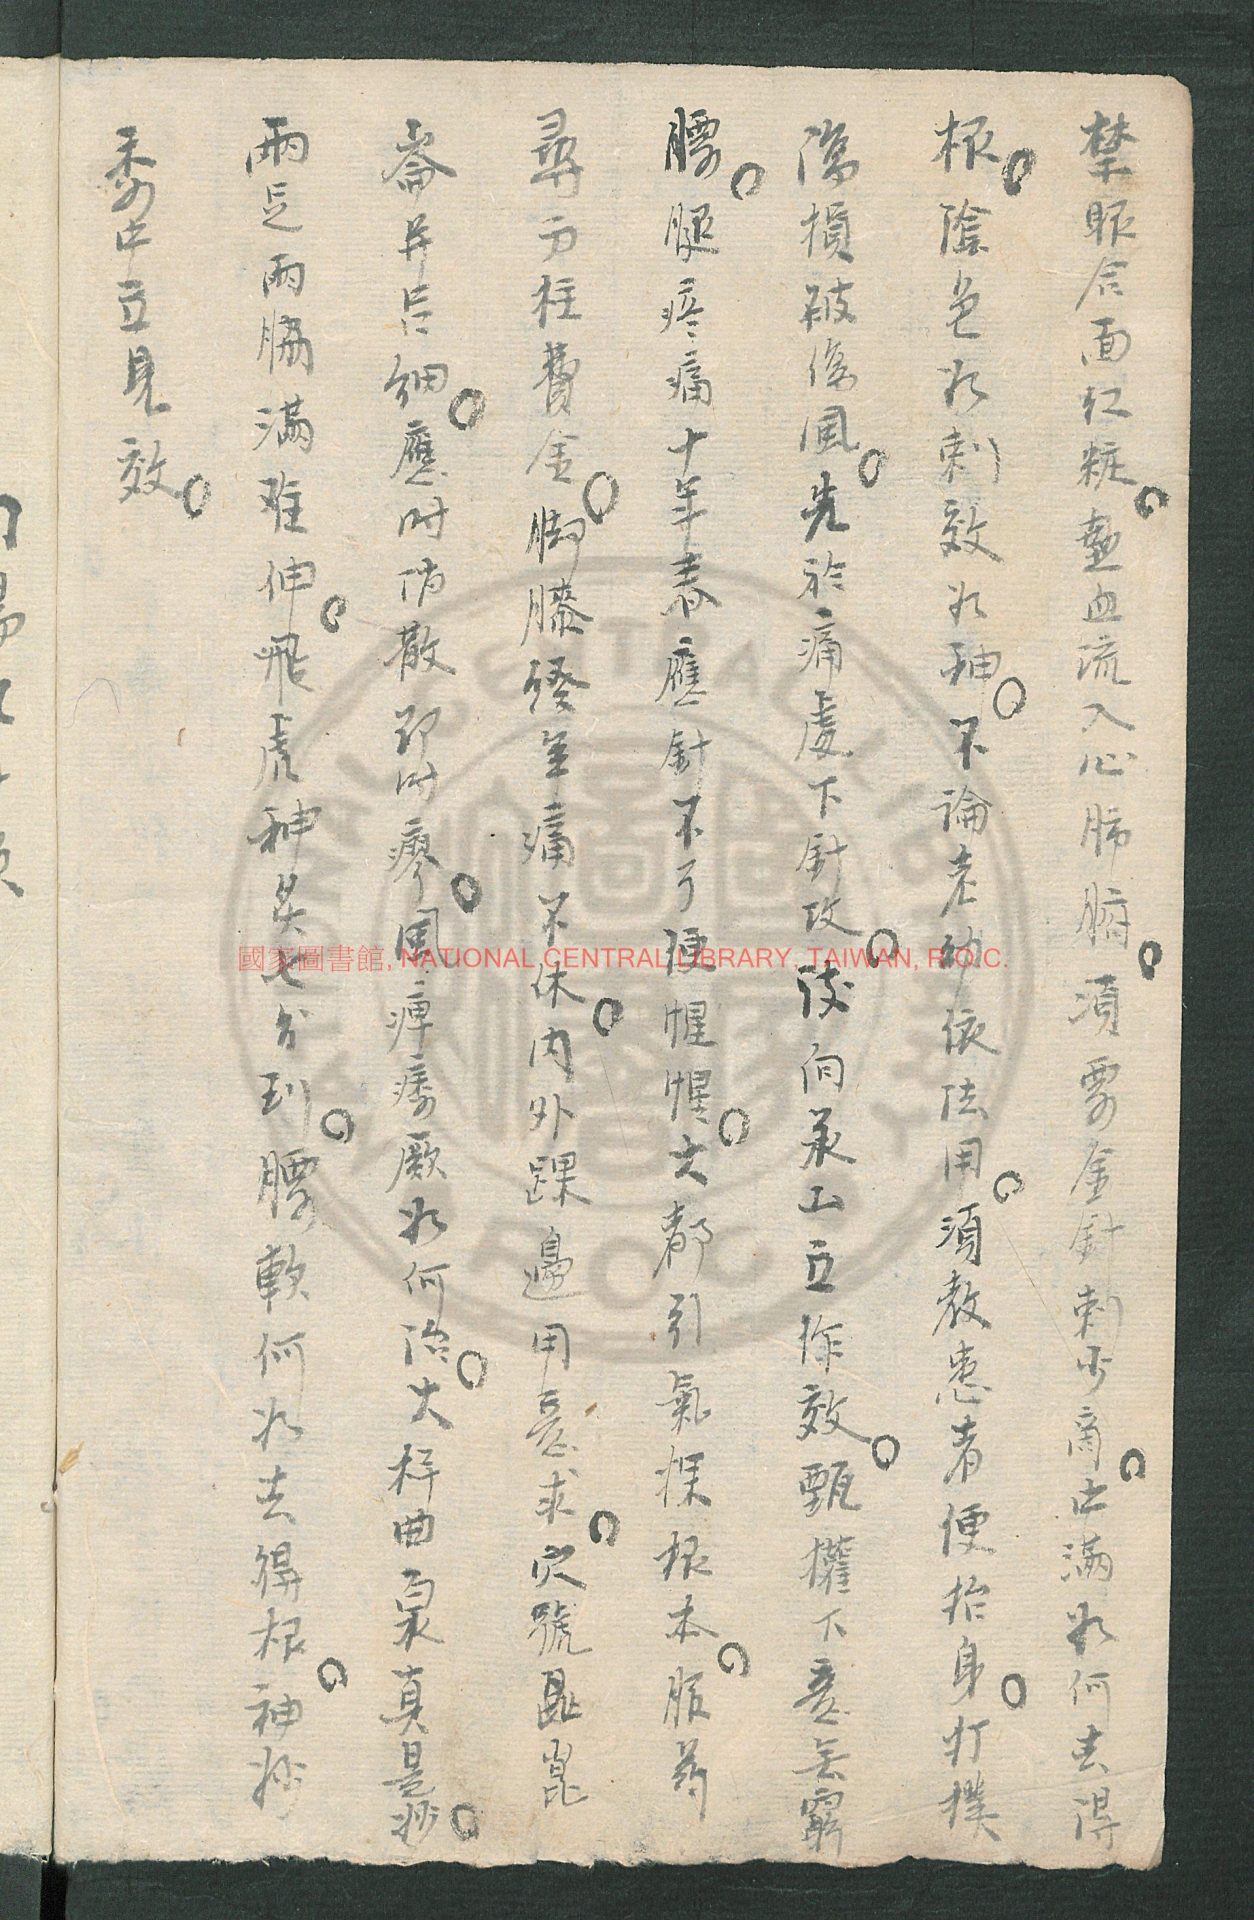 禁眼合面紅粧。熱血流入心肺腑。須要金針刺少商。中滿如何去得
根。陰邑如刺效如神。不論老幼依法用。須教患者便抬身。打撲
傷損破傷風。先於痛處下針攻。後向承山立作效。甄權下意無窮
腰。腿疼痛十年春。應針不了便惺惺。大都引氣探根本。服药
尋方枉費金。脚膝經年痛不休。內外踝邊用意求。穴號崑崑
崙并呂細。應时消散即时瘳。風痺痿厥如何治。大杼曲泉真是妙。
兩足兩脇滿难伸。飛虎神灸七分到。腰軟何如去得根。神妙
委中立見效。
國家圖書館, NATIONAL CENTRAL LIBRARY, TAIWAN, R.O.C.